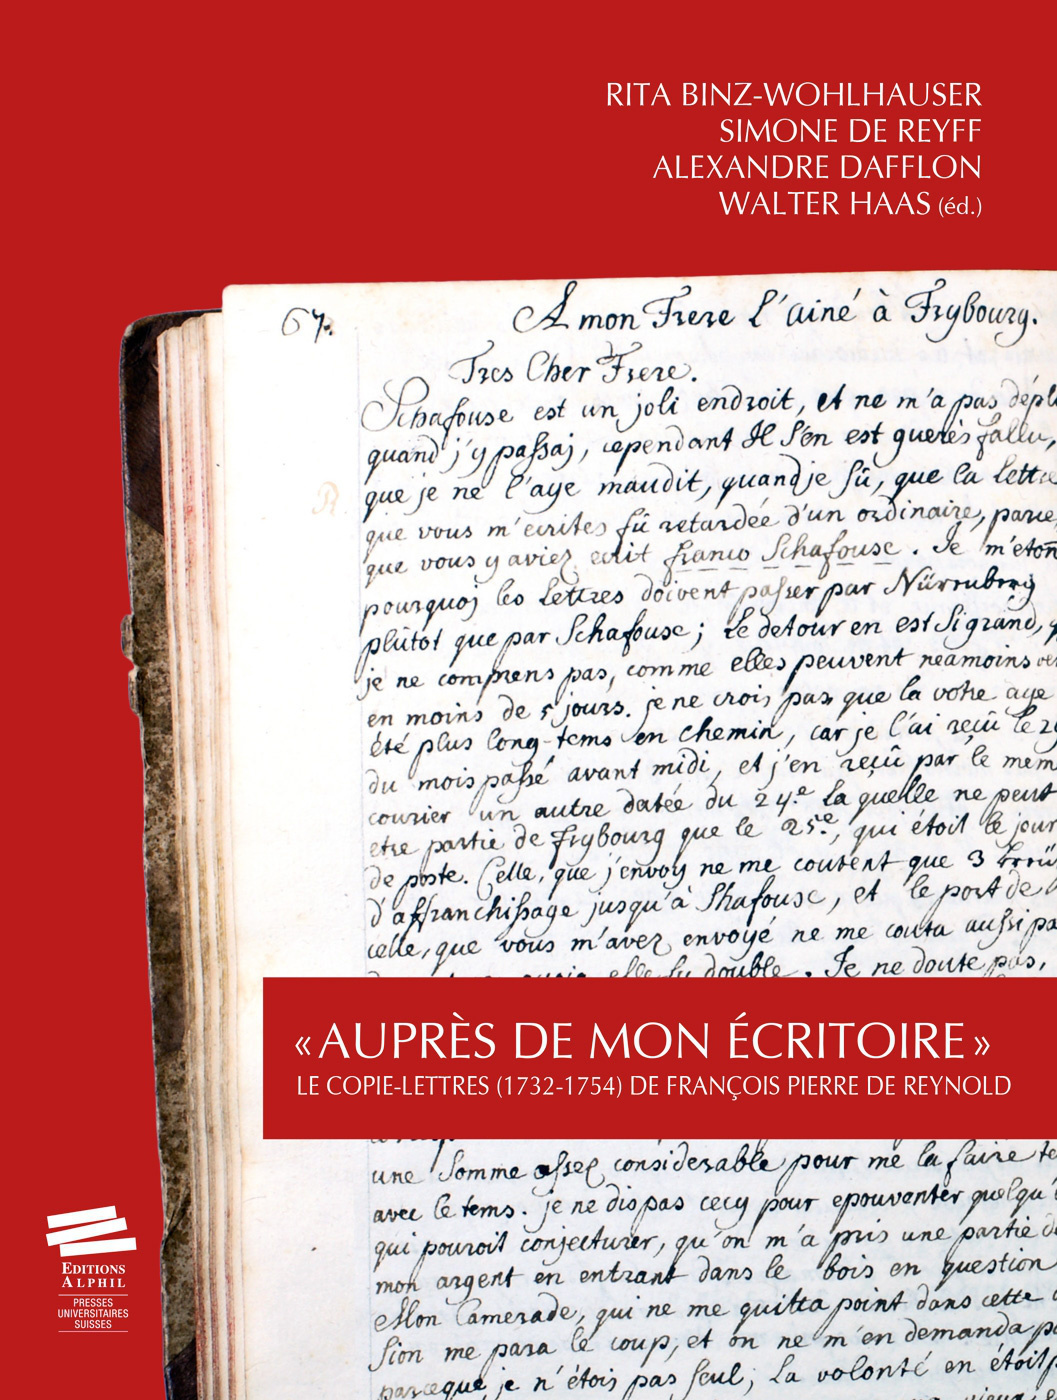 RITA BINZ-WOHLHAUSER
SIMONE DE REYFF
ALEXANDRE DAFFLON
WALTER HAAS (éd.)
67.
A mon Frere l'ainé à Frybourg.
Tres Cher Frere.
Schafouse est un joli endroit, et ne m'a pas dépl
quand j'y passaj, cependant Il s'en est guerès fallu,
que je ne l'aye maudit, quand je sû, que la lettre
que vous m'ecrites fû retardée d'un ordinaire, parce
que vous y aviez ecrit franco Schafouse. Je m'éton
pourquoj les Lettres doivent passer par Nürenberg
plûtot que par Schafouse; Le detour en est Si grand,
je ne comprens pas, comme elles peuvent neamoins
en moins de 5 jours. je ne crois pas que la votre aye
été plus long-tems en chemin, car je l'ai reçû le
du mois passé avant midi, et j'en reçû par le mem
courier un autre datée du 24.e la quelle ne peut
etre partie de Frybourg que le 25.e, qui étoit le jour
de poste. Celle, que j'envoy ne me coutent que 3
d'affranchissage jusqu'à Shafouse, et le port de
celle, que vous m'avez envoyé ne me couta aussi pa
elle fu double. Je ne doute pas,
« AUPRÈS DE MON ÉCRITOIRE »
LE COPIE-LETTRES (1732-1754) DE FRANÇOIS PIERRE DE REYNOLD
une Somme assez considerable pour me la faire
avec le tems. je ne dis pas cecy pour epouventer quelqu'
qui pouroit conjecturer, qu'on m'a pris une partie de
mon argent en entrant dans le bois en question
Mon Camerade, qui ne me quitta point dans cette
sion me para le coup, et on ne m'en demanda
parceque je n'étois pas seul; La volonté en étoit
EDITIONS
ALPHIL
PRESSES
UNIVERSITAIRES
SUISSES